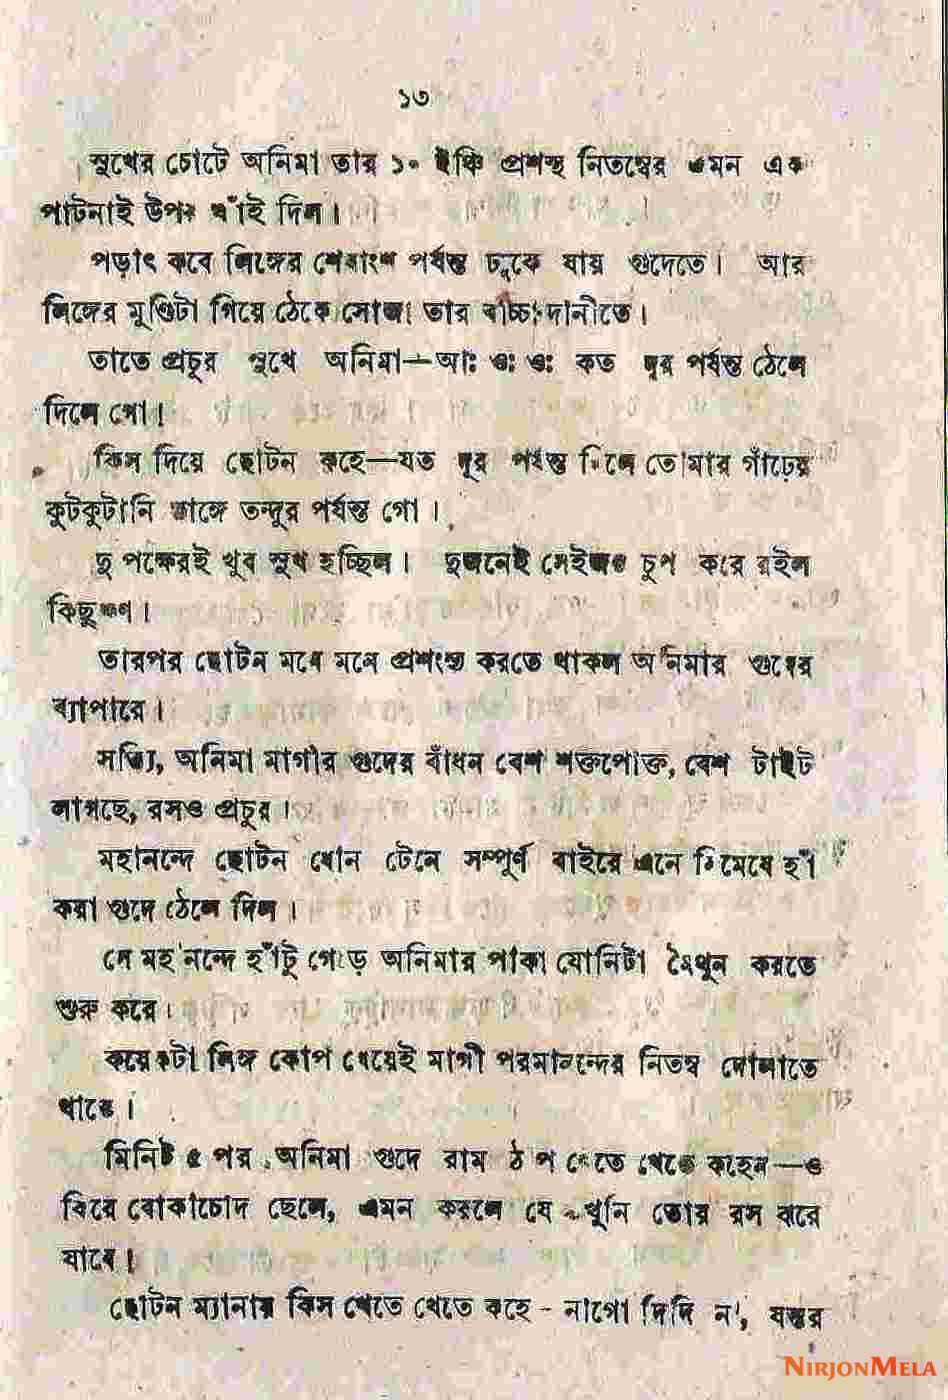 ১৩
সুখের চোটে অনিমা তার ১০ ইঞ্চি প্রশস্থ নিতম্বের এমন এক
পাটনাই উপর ঘাঁই দিল।
পড়াৎ করে লিঙ্গের শেষাংশ পর্যন্ত ঢুকে যায় গুদেতে। আর
লিঙ্গের মুণ্ডিটা গিয়ে ঠেকে সোজা তার বাচ্চাদানীতে।
তাতে প্রচুর সুখে অনিমা—আঃ ওঃ ওঃ কত দূর পর্যন্ত ঠেলে
দিলে গো!
কিস দিয়ে ছোটন কহে—যত দূর পর্যন্ত দিলে তোমার গাঁঢ়ের
কুটকুটানি ভাঙ্গে তন্দুর পর্যন্ত গো।
দু পক্ষেরই খুব সুখ হচ্ছিল। দুজনেই সেইজন্য চুপ করে রইল
কিছুক্ষণ।
তারপর ছোটন মনে মনে প্রশংসা করতে থাকল অনিমার গুদের
ব্যাপারে।
সত্যি, অনিমা মাগীর গুদের বাঁধন বেশ শক্তপোক্ত, বেশ টাইট
লাগছে, রসও প্রচুর।
মহানন্দে ছোটন ধোন টেনে সম্পূর্ণ বাইরে এনে নিমেষে হাঁ
করা গুদে ঠেলে দিল।
সে মহানন্দে হাঁটু গেড়ে অনিমার পাকা যোনিটা মৈথুন করতে
শুরু করে।
কয়েকটা লিঙ্গ কোপ খেয়েই মাগী পরমানন্দের নিতম্ব দোলাতে
থাকে।
মিনিট ৫ পর অনিমা গুদে রাম ঠাপ খেতে খেতে কহেন—ও
কিরে বোকাচোদ ছেলে, এমন করলে যে এখুনি তোর রস ঝরে
যাবে।
ছোটন ম্যানায় কিস খেতে খেতে কহে - নাগো দিদি না, যন্তর
NIRJONMELA